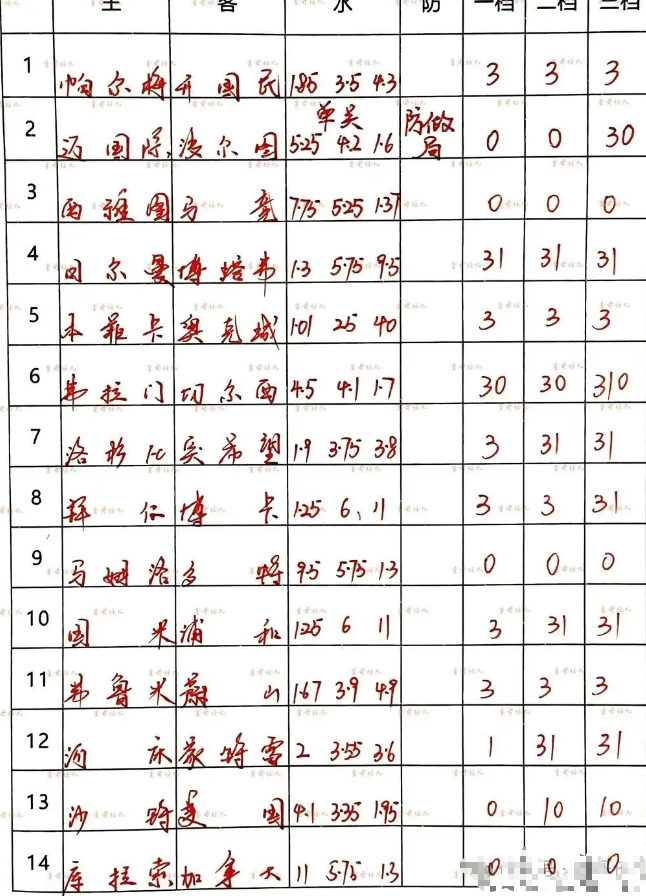 主 客 水 防 一档 二档 三档
1 帕尔梅 开国民 1.85 3.5 4.3 3 3 3
单关 防做
2 迈国际 波尔图 5.25 4.2 1.6 局 0 0 30
3 西雅图 马竞 7.75 5.25 1.37 0 0 0
4 日尔曼 博塔弗 1.3 5.75 9.5 31 31 31
5 本菲卡 奥克城 1.01 25 40 3 3 3
6 弗拉门 切尔西 4.5 4.1 1.7 30 30 310
7 洛杉 突希望 1.9 3.75 3.8 3 31 31
8 拜仁 博卡 1.25 6 11 3 3 31
9 马姆洛 多特 9.5 5.75 1.3 0 0 0
10 国米 浦和 1.25 6 11 3 31 31
11 弗鲁米 蔚山 1.67 3.9 4.9 3 3 3
12 河床 蒙特雷 2 3.55 3.6 1 31 31
13 沙特 美国 4.1 3.35 1.95 0 10 10
14 库拉索 加拿大 11 5.75 1.3 0 0 0